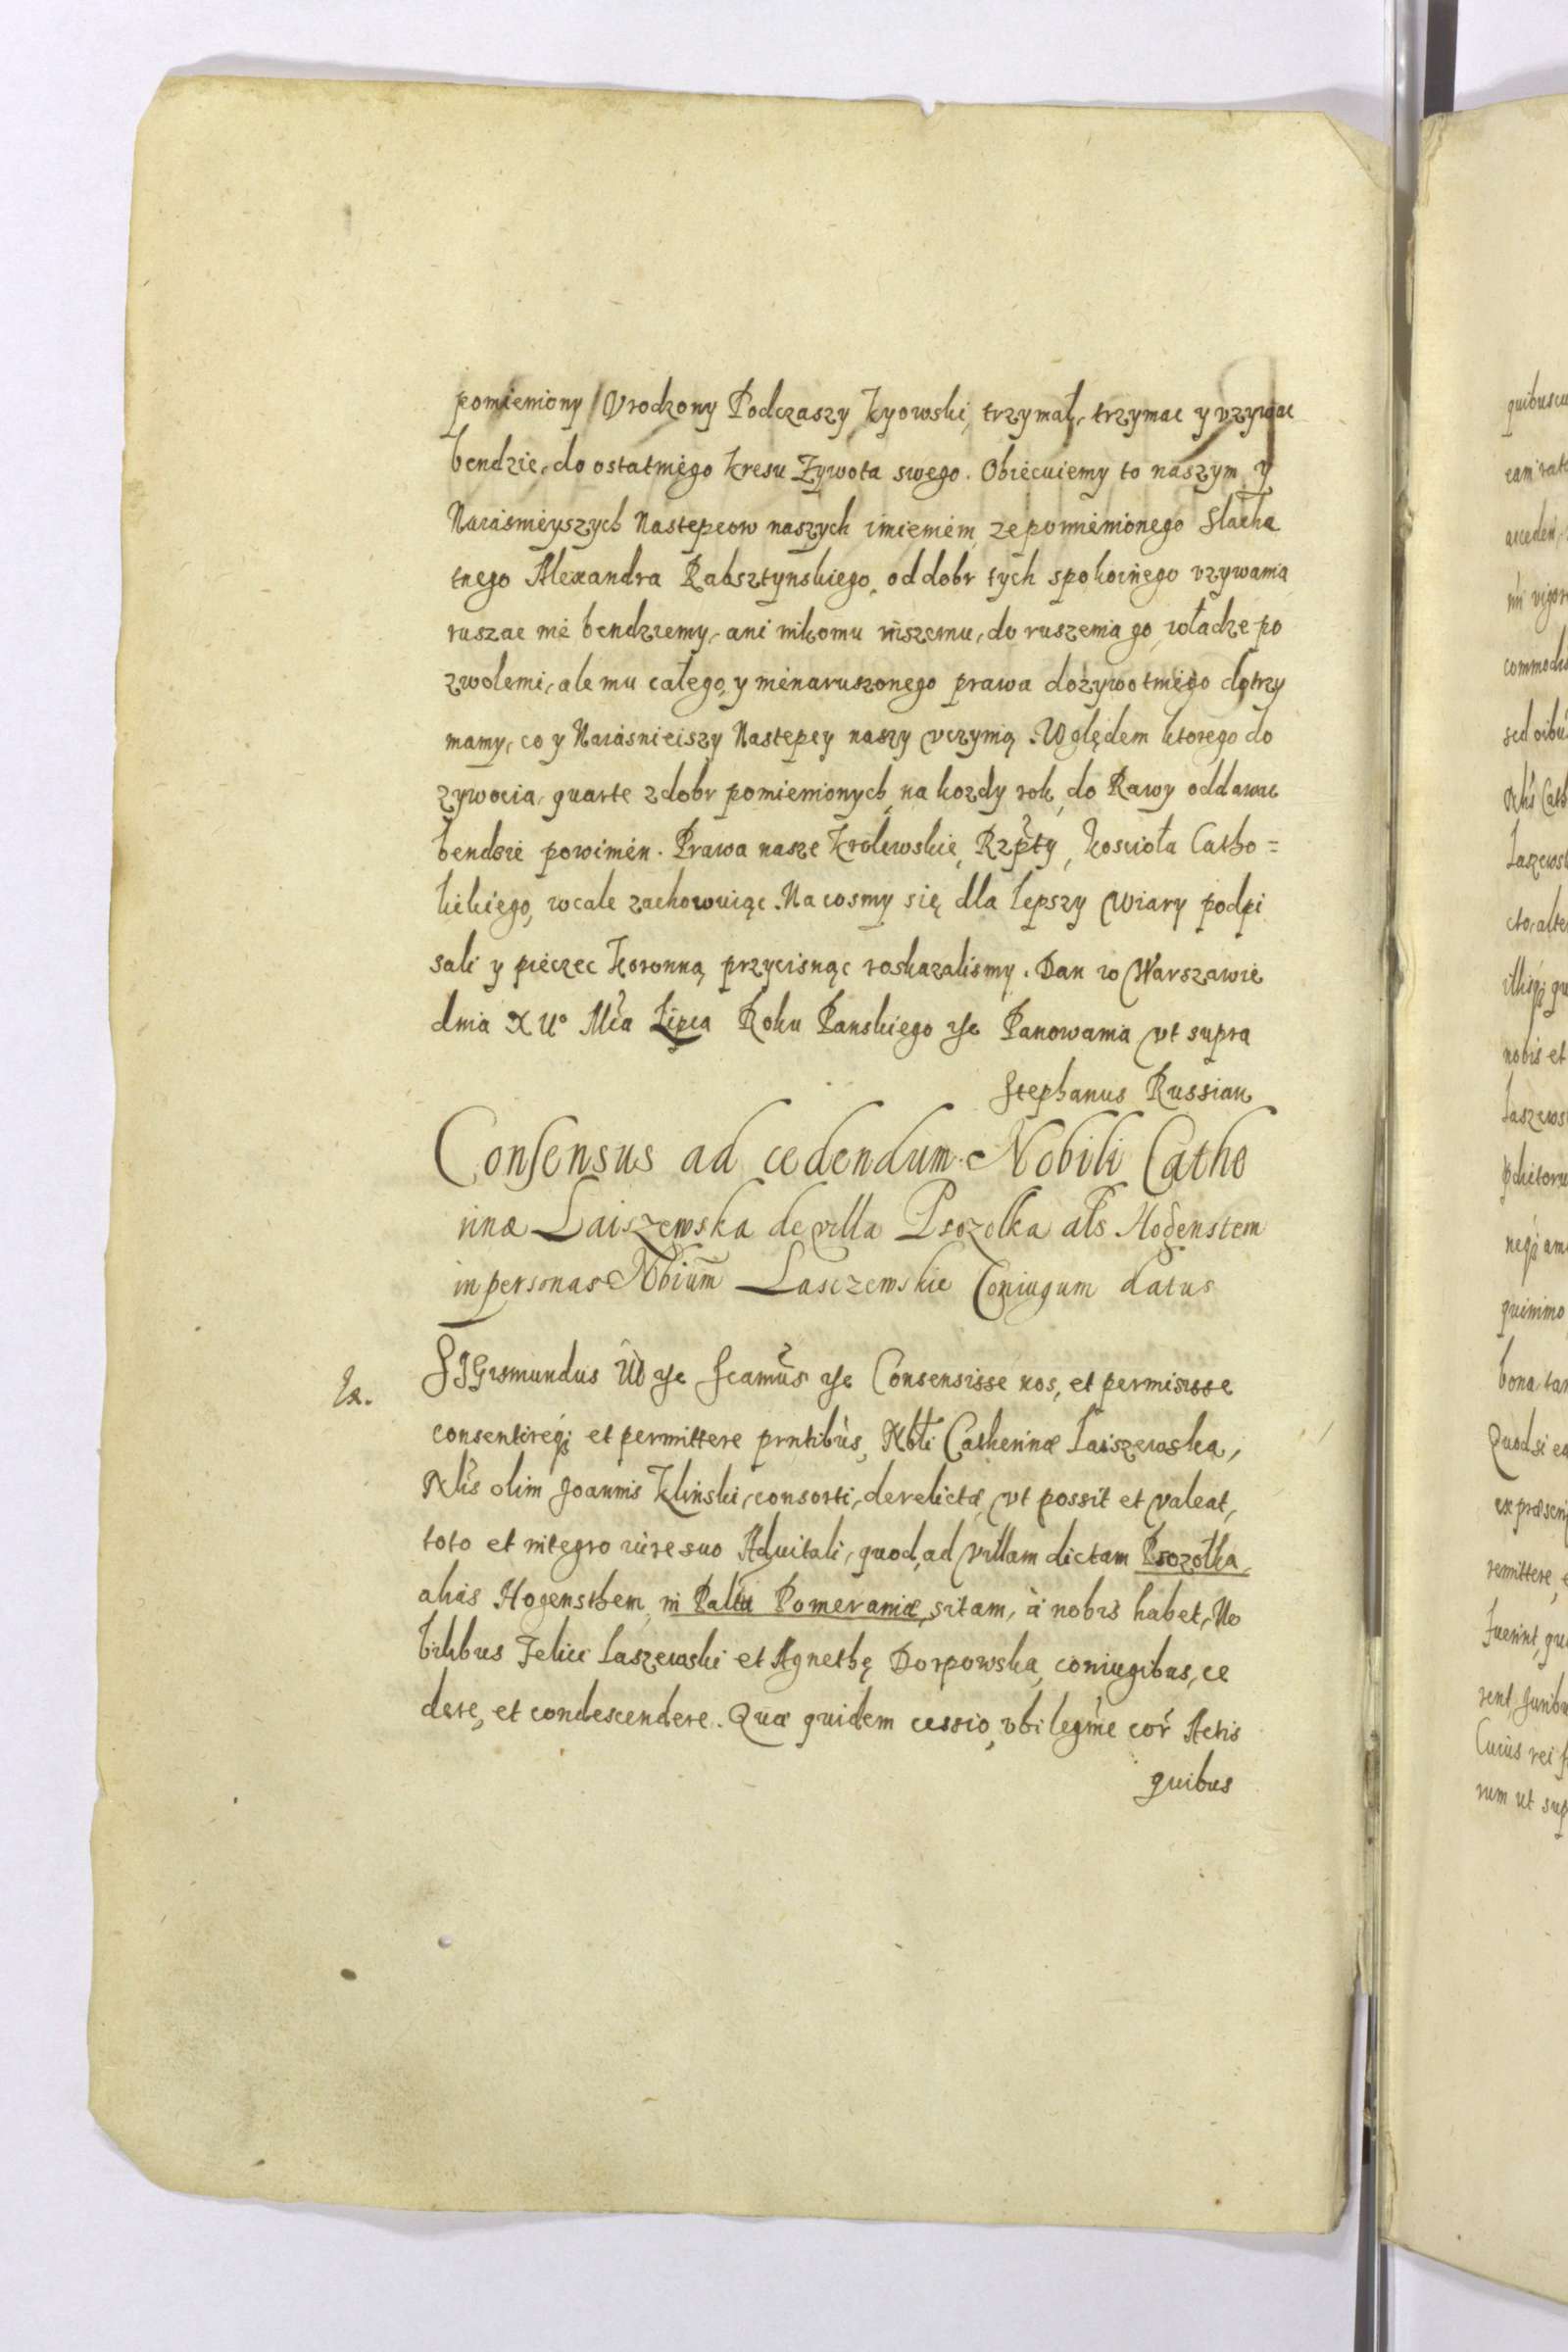 pomieniony Vrodzony Podczaszy Kyowski, trzymał, trzymac y vzywac
bendzie, do ostatniego kresu Zywota swego. Obiecuiemy to naszym y
Naiasnieyszych Nastepcow naszych imieniem, ze pomienionego Slache
tnego Alexandra Rabsztynskiego, od dobr tych spokoinego vzywania
ruszac nie bendziemy, ani nikomu inszemu, do ruszenia go, władze po
zwolemi, ale mu całego, y nienaruszonego prawa dozywotniego dotrzy
mamy, co y Naiasnieiszy Nastepcy naszy vczynią. Względem ktorego do
zywocia, quarte z dobr pomienionych, na kozdy rok, do Rawy oddawac
bendzie powinien. Prawa nasze Krolewskie, Rzpty, Koscioła Catho=
lickiego, wcale zachowuiąc. Na cosmy się dla lepszy wiary podpi
sali y pieczec Koronną przycisnąc roskazalismy. Dan w Warszawie
dnia XVo Mca Lipca Roku Panskiego etc Panowania vt supra
Stephanus Russian
Consensus ad cedendum Nobili Cathe
rinæ Laiszewska de villa Psozolka als Hogenstem
in personas Nobium Lasczewskie Coniugum datus
Sigismundus III etc Scamus etc Consensisse nos, et permisisse
consentireq; et permittere prntibus, Nbli Catherinæ Laiszewska,
Nlis olim Joannis Klinski, consorti, derelictæ, vt possit et valeat,
toto et integro iure suo Aduitali, quod, ad villam dictam Psozołka
alias Hogensthem, in Paltu Pomeraniæ, sitam, à nobis habet, No
bilibus Felici Laszewski et Agnethę Dorpowska, coniugibus, ce
dere, et condescendere. Quæ quidem cessio, vbi legme cor Actis
quibus